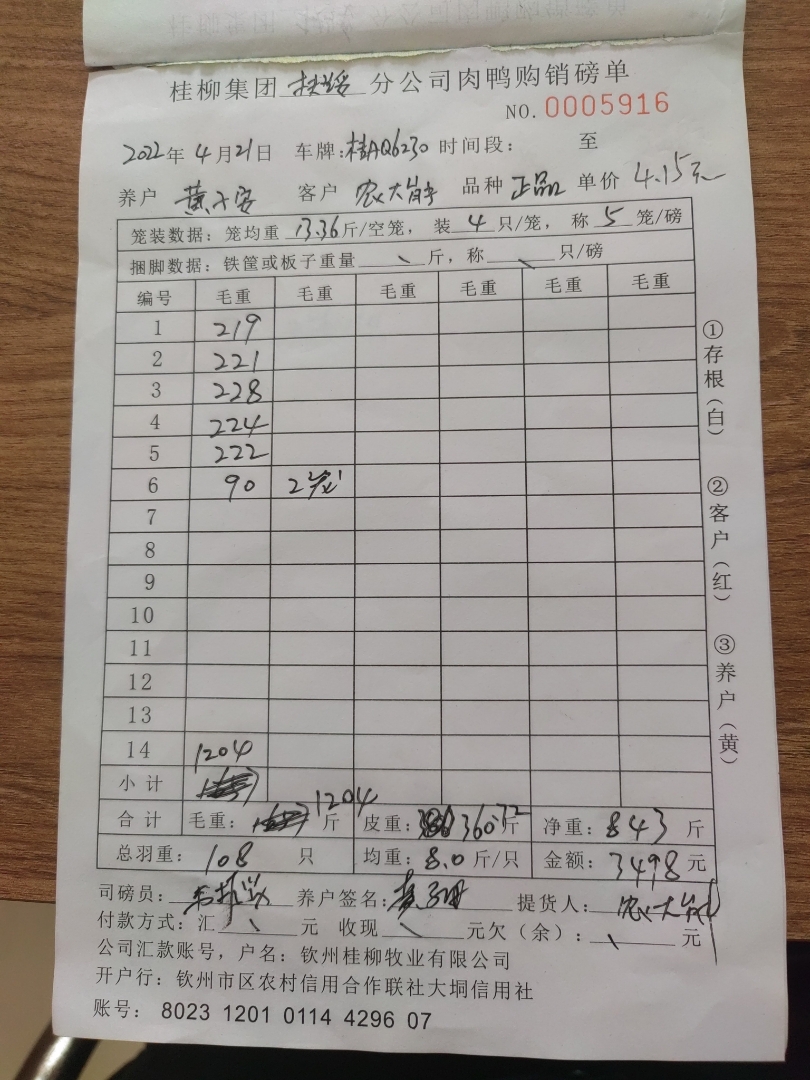 桂柳集团 扶绥 分公司肉鸭购销磅单
NO. 0005916
2022年 4月21日 车牌:桂AQ6230 时间段: 至
养户 黄 安 客户 农大 品种 正品 单价 4.15元
笼装数据: 笼均重 13.36 斤/空笼, 装 4 只/笼, 称 5 笼/磅
捆脚数据: 铁筐或板子重量 \ 斤, 称 \ 只/磅
编号 毛重 毛重 毛重 毛重 毛重 毛重
1 219
2 221
3 228
4 224
5 222
6 90 2笼
7
8
9
10
11
12
13
14
小计 1204
合计 毛重: 1204 斤 皮重: 360.72 斤 净重: 843 斤
总羽重: 108 只 均重: 8.0 斤/只 金额: 3498 元
司磅员: 养户签名: 黄 提货人: 农大
付款方式: 汇 \ 元 收现 \ 元欠(余): \ 元
公司汇款账号, 户名: 钦州桂柳牧业有限公司
开户行: 钦州市区农村信用合作联社大垌信用社
账号: 8023 1201 0114 4296 07
①存根(白)
②客户(红)
③养户(黄)